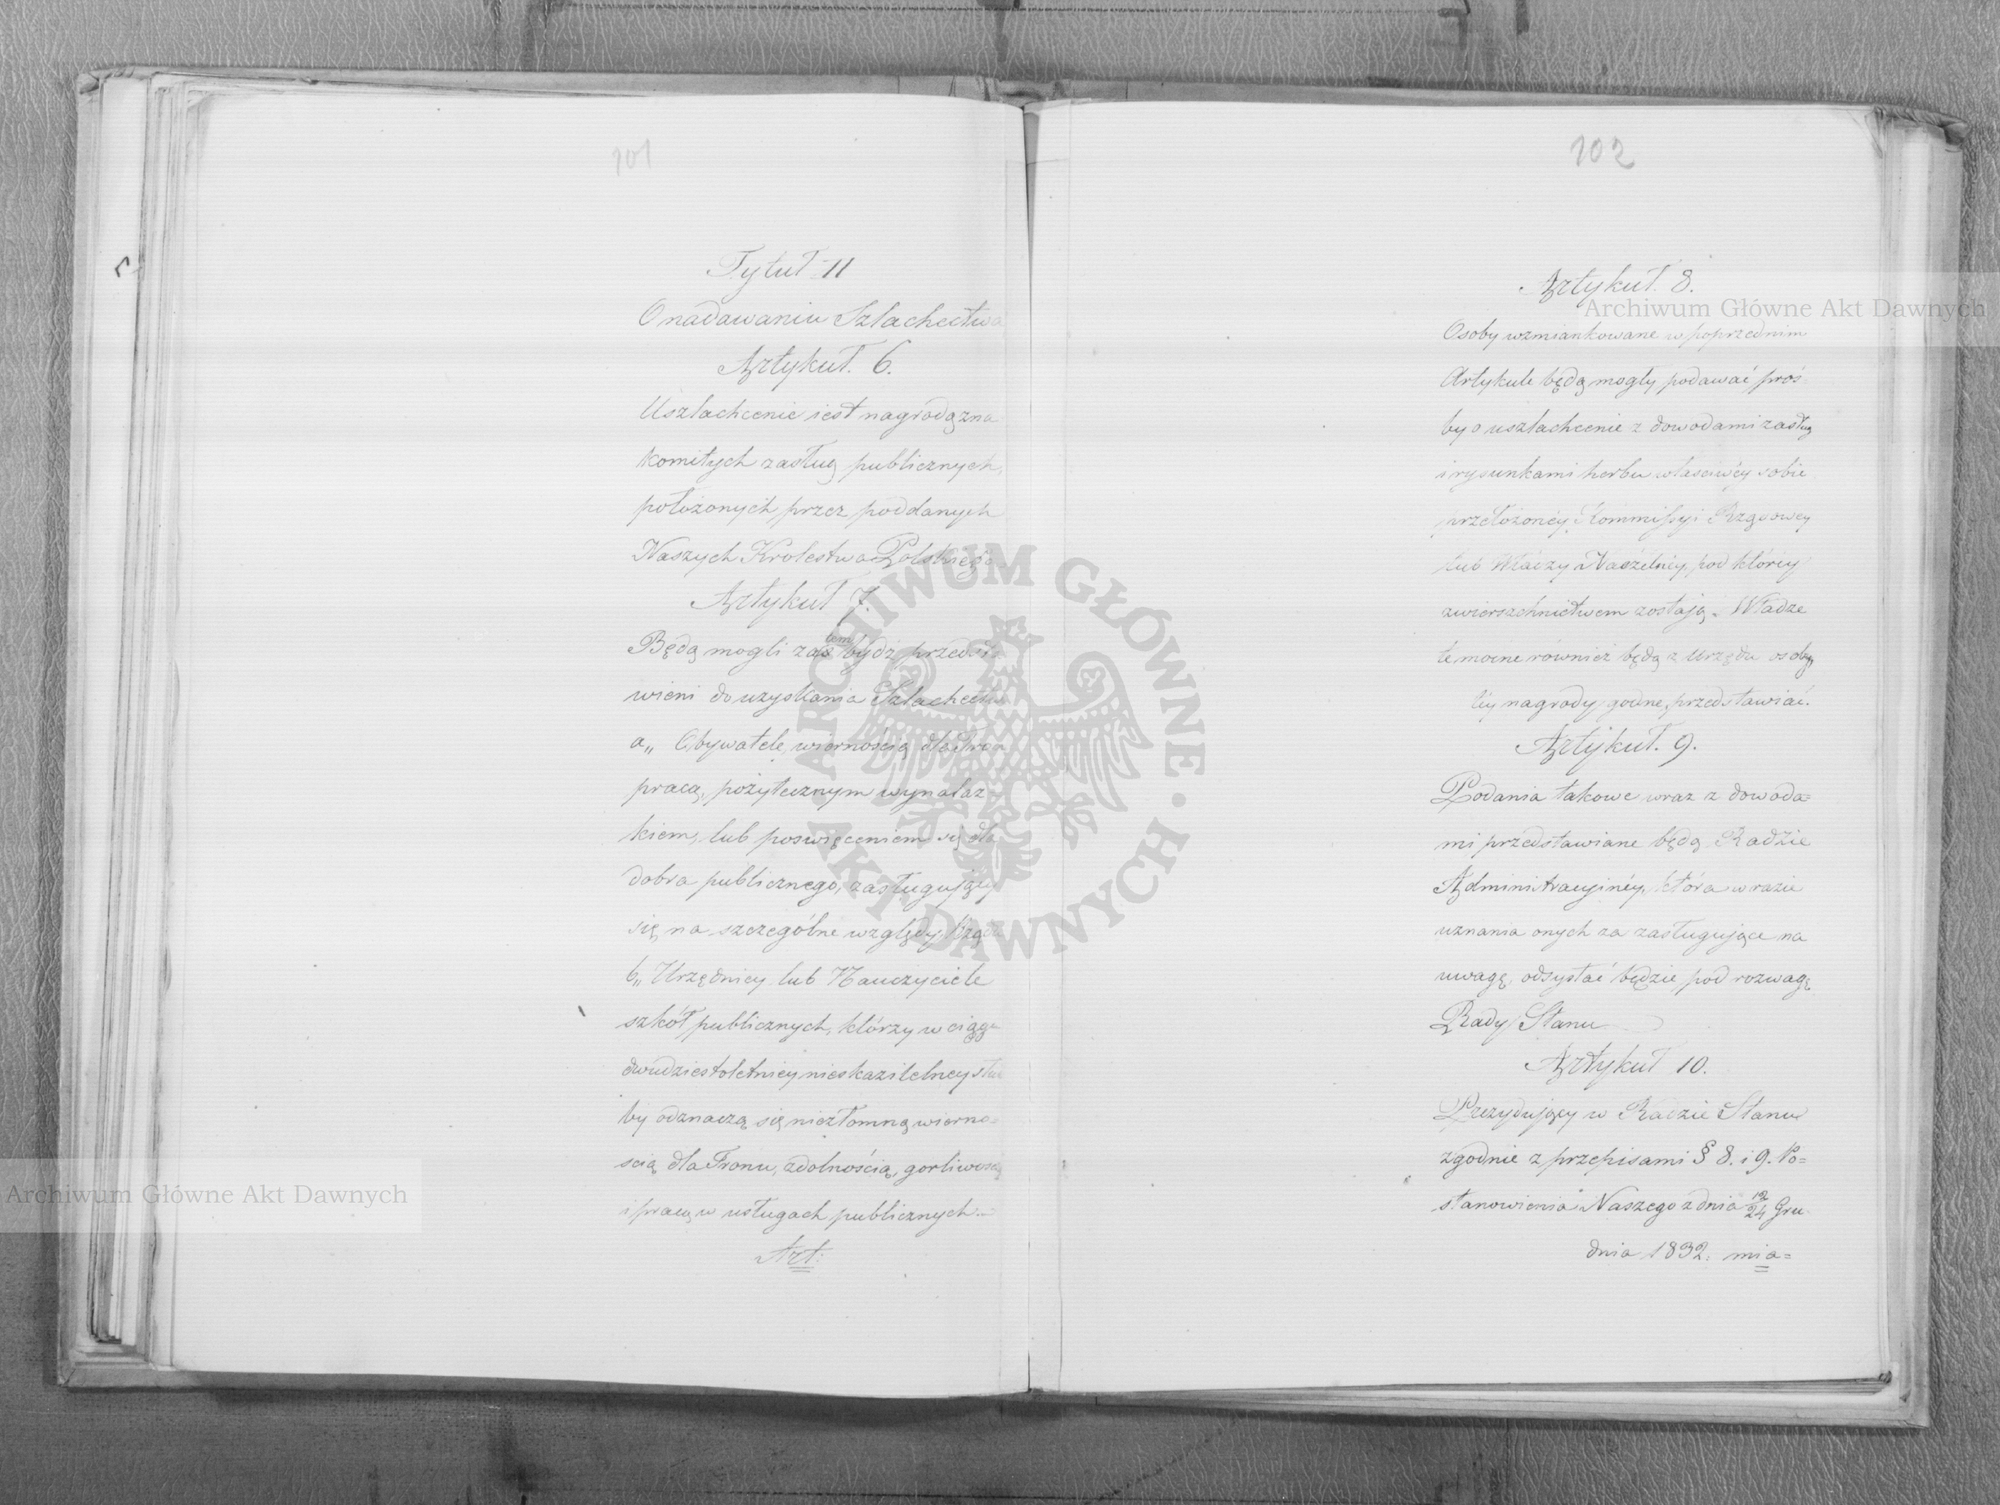 101
Tytuł II
O nadawaniu Szlachectwa
Artykuł. 6.
Uszlachcenie iest nagrodą zna
komitych zasług publicznych,
położonych przez poddanych
Naszych Krolestwa Polskiego.
Artykuł 7.
Będą mogli zatem bydź przedsta
wieni do uzyskania Szlachectwa
a„ Obywatele, wiernością dla Tronu
pracą, pożytecznym wynalaz-
kiem, lub poswięceniem się dla
dobra publicznego, zasługujący
się na szczególne względy Rządu
b„ Urzędnicy lub Nauczyciele
szkół publicznych, którzy w ciągu
dwudziestoletniey nieskazitelney służ
by odznaczą się niezłomną wierno=
scią dla Tronu, zdolnością, gorliwością
i pracą w usługach publicznych.
Art:
102
Artykuł. 8.
Osoby wzmiankowane w poprzednim
Artykule będą mogły podawać proś
by o uszlachcenie z dowodami zasług
i rysunkami herbu własciwéy sobie
przełożonéy Kommissyi Rządowey
lub Władzy Naczélnéy, pod któréy
zwierzchnictwem zostają. Władze
te mocne również będą z urzędu osoby,
téy nagrody godne, przedstawiać.
Artykuł. 9.
Podania takowe wraz z dowoda=
mi przedstawiane będą Radzie
Administracyinéy, która w razie
uznania onych za zasługujące na
uwagę, odsyłać będzie pod rozwagę
Rady Stanu
Artykuł 10.
Prezydujący w Radzie Stanu
zgodnie z przepisami § 8. i 9. Po=
stanowienia Naszego z dnia 12/24 Gru
dnia 1832. mia=
Archiwum Główne Akt Dawnych
Archiwum Główne Akt Dawnych
ARCHIWUM GŁÓWNE • AKT DAWNYCH •